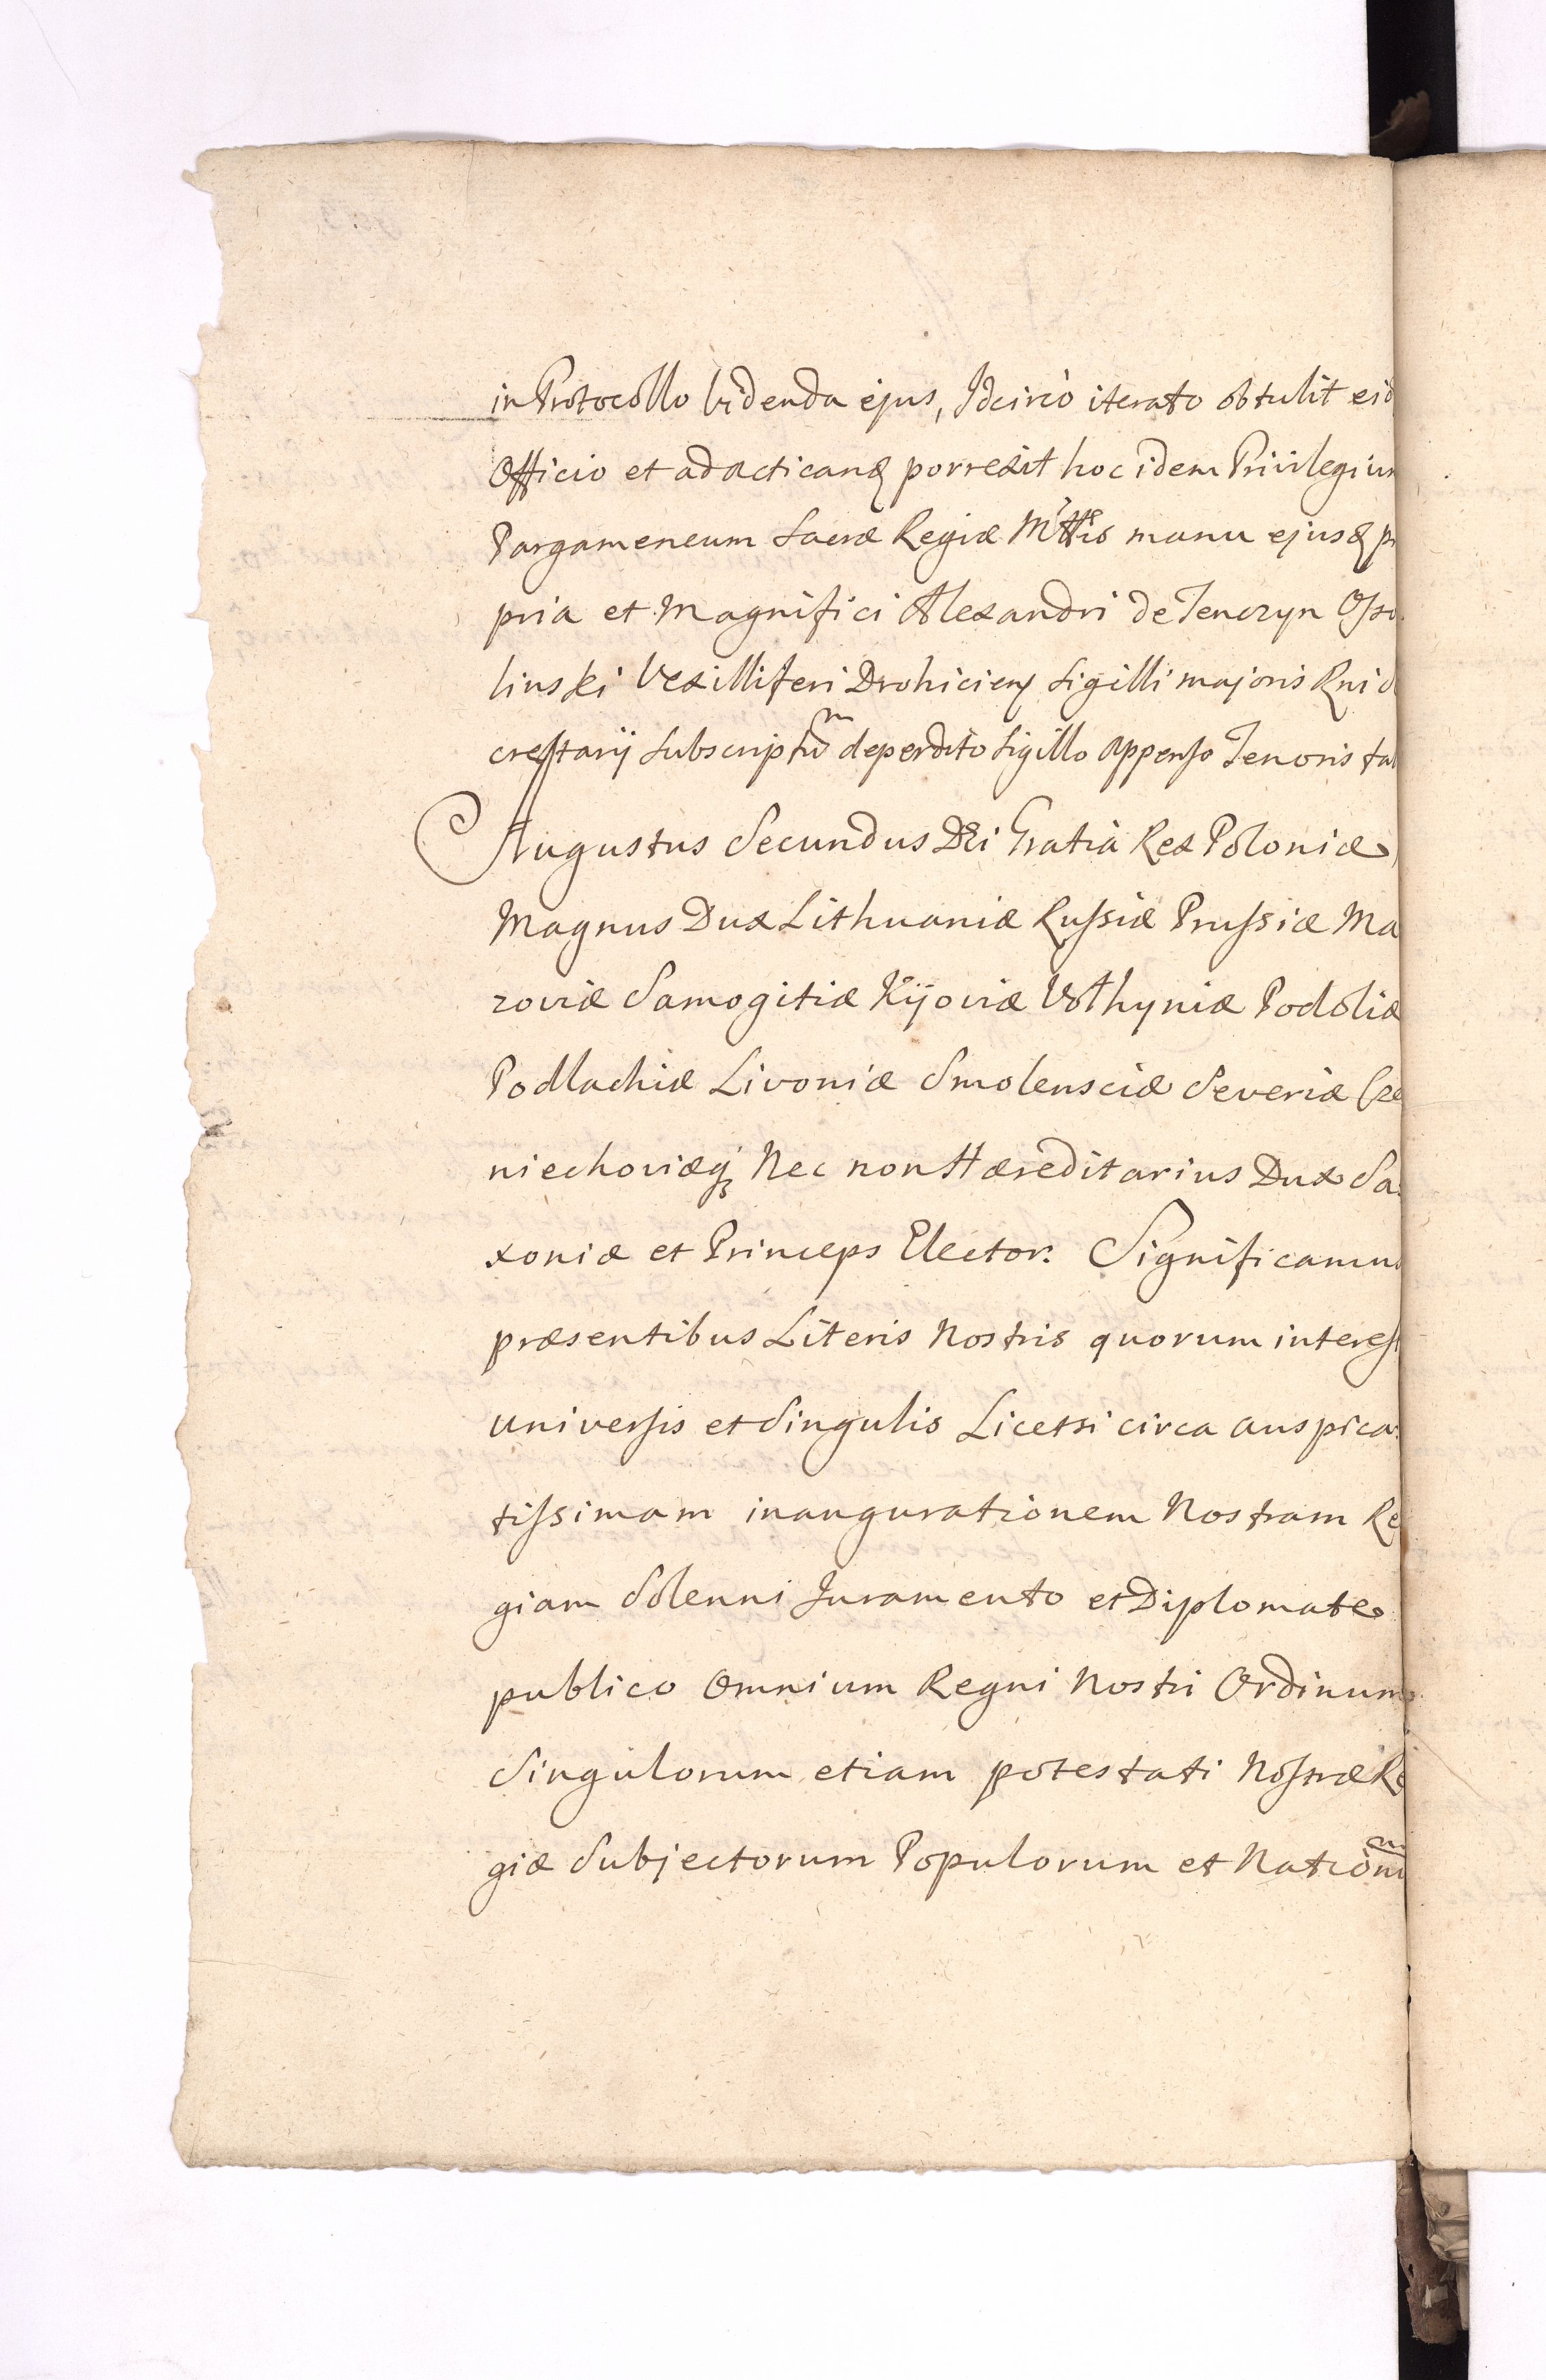 in Protocollo videnda ejus, Idcircò iterato obtulit eid
Officio et ad acticand porrexit hoc idem Privilegium
Pargameneum Sacræ Regiæ Mttis manu ejusd pro
pria et Magnifici Alexandri de Tenczyn Osso
linski Vexilliferi Drohiciens Sigilli majoris Rni
cretarij subscriptũ deperdito Sigillo appenso Tenoris tal
Augustus Secundus Dei Gratiâ Rex Poloniæ
Magnus Dux Lithuaniæ Russiæ Prussiæ Ma
zoviæ Samogitiæ Kijoviæ Volhyniæ Podoliæ
Podlachiæ Livoniæ Smolensciæ Severiæ Cze
niechoviæq3 Nec non Hæreditarius Dux Sa:
xoniæ et Princeps Elector: Significamus
præsentibus Literis Nostris quorum interest
universis et Singulis Licet si circa auspica:
tissimam inaugurationem Nostram Re
giam Solenni Juramento et Diplomate
publico Omnium Regni Nostri Ordinum
Singulorum etiam potestati Nostræ Re
giæ Subjectorum Populorum et Nationũ